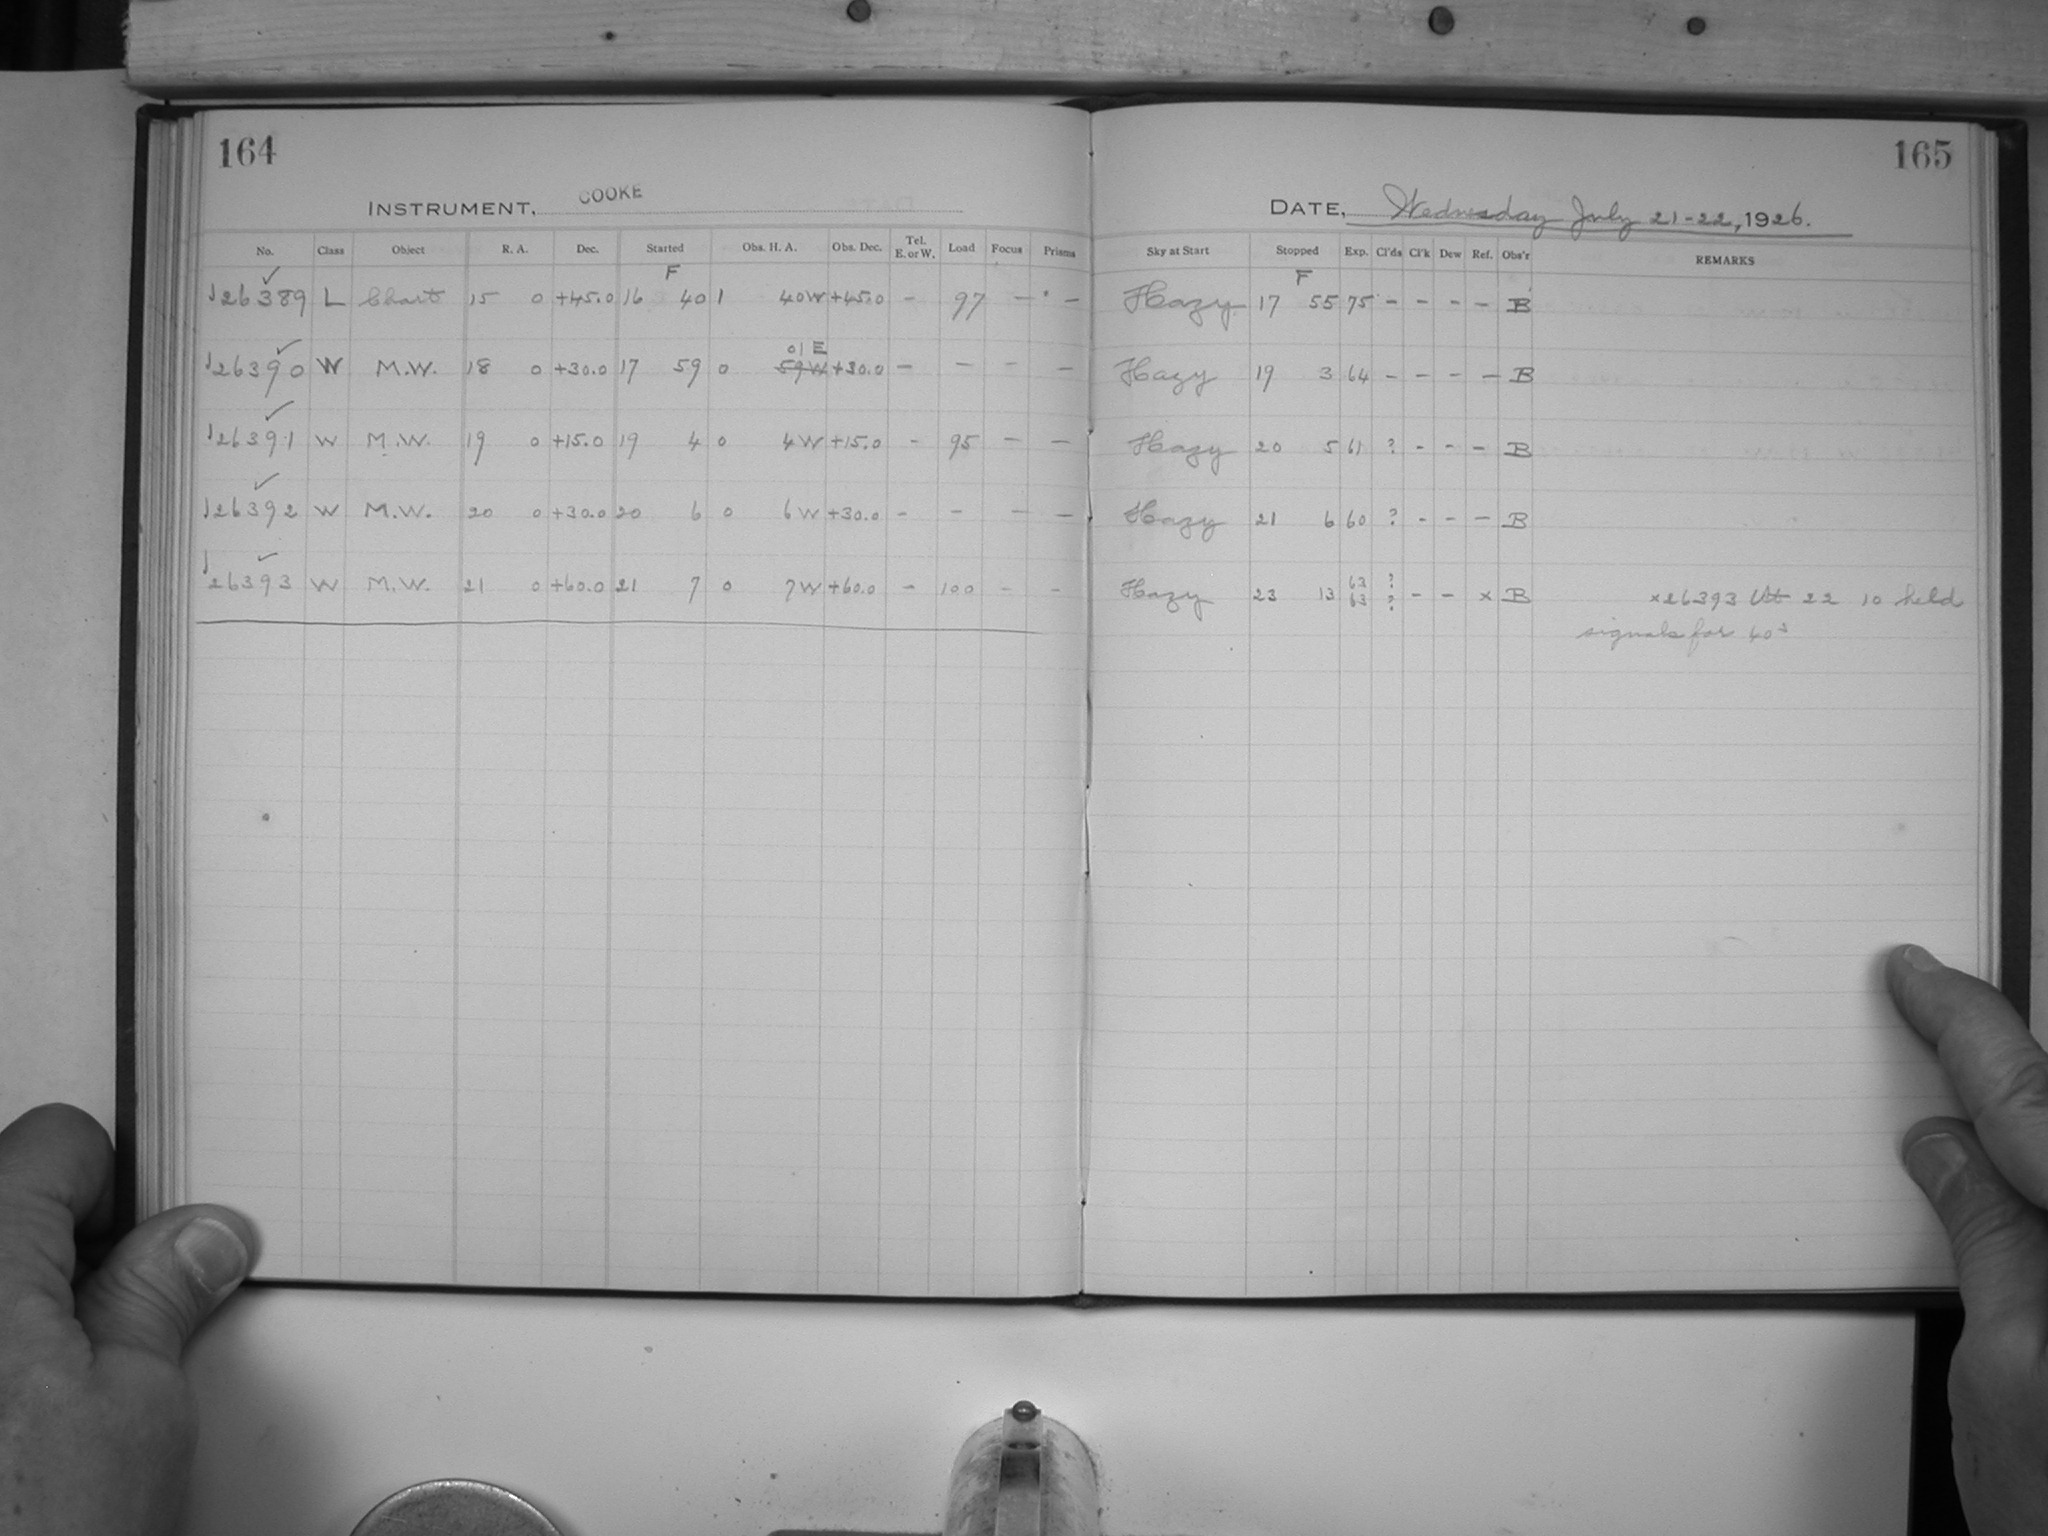 164
INSTRUMENT, COOKE
No. Class Object R. A. Dec. Started Obs. H. A. Obs. Dec. Tel. E. or W. Load Focus Prisms
F
26389 L Chart 15 0 +45.0 16 40 1 40W +45.0 - 97 - -
01 E
26390 W M.W. 18 0 +30.0 17 59 0 59W +30.0 - - - -
26391 W M.W. 19 0 +15.0 19 4 0 4W +15.0 - 95 - -
26392 W M.W. 20 0 +30.0 20 6 0 6W +30.0 - - - -
26393 W M.W. 21 0 +60.0 21 7 0 7W +60.0 - 100 - -
165
DATE, Wednesday July 21-22, 1926.
Sky at Start Stopped Exp. Cl'ds Cl'k Dew Ref. Obs'r REMARKS
F
Hazy 17 55 75 - - - - B
Hazy 19 3 64 - - - - B
Hazy 20 5 61 ? - - - B
Hazy 21 6 60 ? - - - B
63 ?
Hazy 23 13 63 ? - - x B x26393 22 10 held
signals for 40s